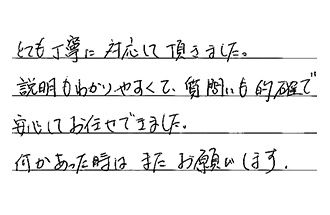 とても丁寧に対応して頂きました。
説明もわかりやすくて、質問いも的確で
安心してお任せできました。
何かあった時は またお願いします.